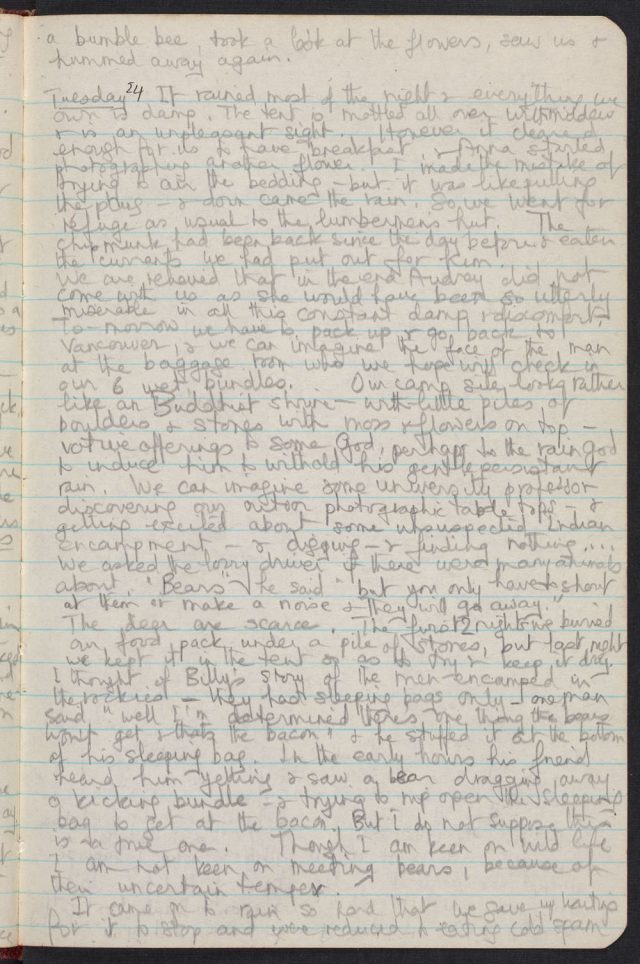 a bumble bee, took a look at the flowers, saw us &
hummed away again.
Tuesday 24 It rained most of the night & everything we
own is damp. The tent is mottled all over with mildew
& is an unpleasant sight. However it cleared
enough for us to have breakfast & Anna started
photographing another flower. I made the mistake of
trying to air the bedding – but it was like pulling
the plug – & down came the rain. So we went for
refuge as usual to the lumbermens hut. The
chipmunk had been back since the day before & eaten
the currents we had put out for him.
We are relieved that in the end Audrey did not
come with us as she would have been so utterly
miserable in all this constant damp & discomfort.
To-morrow we have to pack up & go back to
Vancouver, & we can imagine the face of the man
at the baggage room who we hope will check in
our 6 wet bundles. Our camp site looks rather
like an Buddhist shrine – with little piles of
boulders & stones with moss & flowers on top –
votive offerings to some God, perhaps to the rain god
to induce him to withold his gentle persistant
rain. We can imagine some university professor
discovering our outdoor photographic table tops – &
getting excited about some unsuspected Indian
encampment – & digging – & finding nothing....
We asked the lorry driver if there were many animals
about. "Bears" he said "but you only have to shout
at them or make a noise & they will go away."
The deer are scarce. The first 2 nights we buried
our food pack under a pile of stones, but last night
we kept it in the tent so as to try & keep it dry.
I thought of Billy's story of the men encamped in
the rockies – they had sleeping bags only – one man
said "well I'm determined theres one thing the bears
wont get & thats the bacon" & he stuffed it at the bottom
of his sleeping bag. In the early hours his friend
heard him yelling & saw a bear dragging away
a kicking bundle – & trying to rip open the sleeping
bag to get at the bacon. But I do not suppose this
is a true one. Though I am keen on wild life
I am not keen on meeting bears, because of
their uncertain temper.
It came on to rain so hard that we gave up waiting
for it to stop and were reduced to eating cold spam